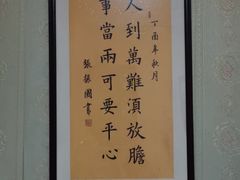 丁酉年秋月
人到萬難須放膽
事當兩可要平心
張 國書